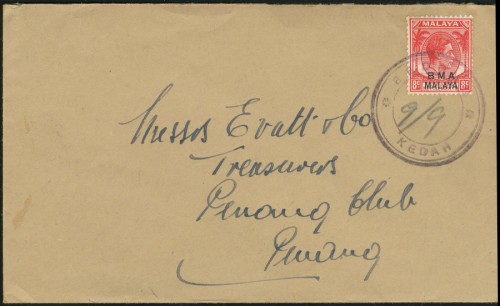 MALAYA
BMA
MALAYA
8c 8c
9/9
KEDAH
Messrs Evatt & Co
Treasurers
Penang Club
Penang